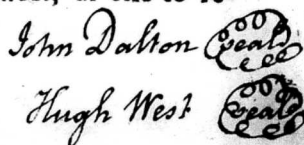 John Dalton seal
Hugh West seal